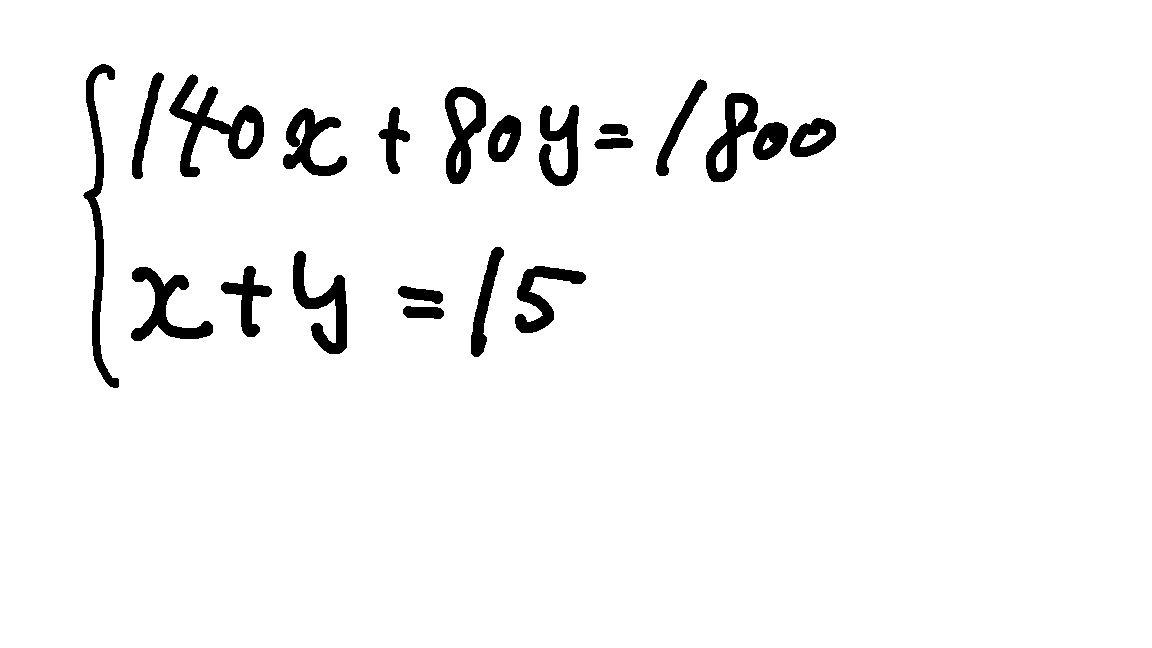 140x + 80y = 1800
x + y = 15